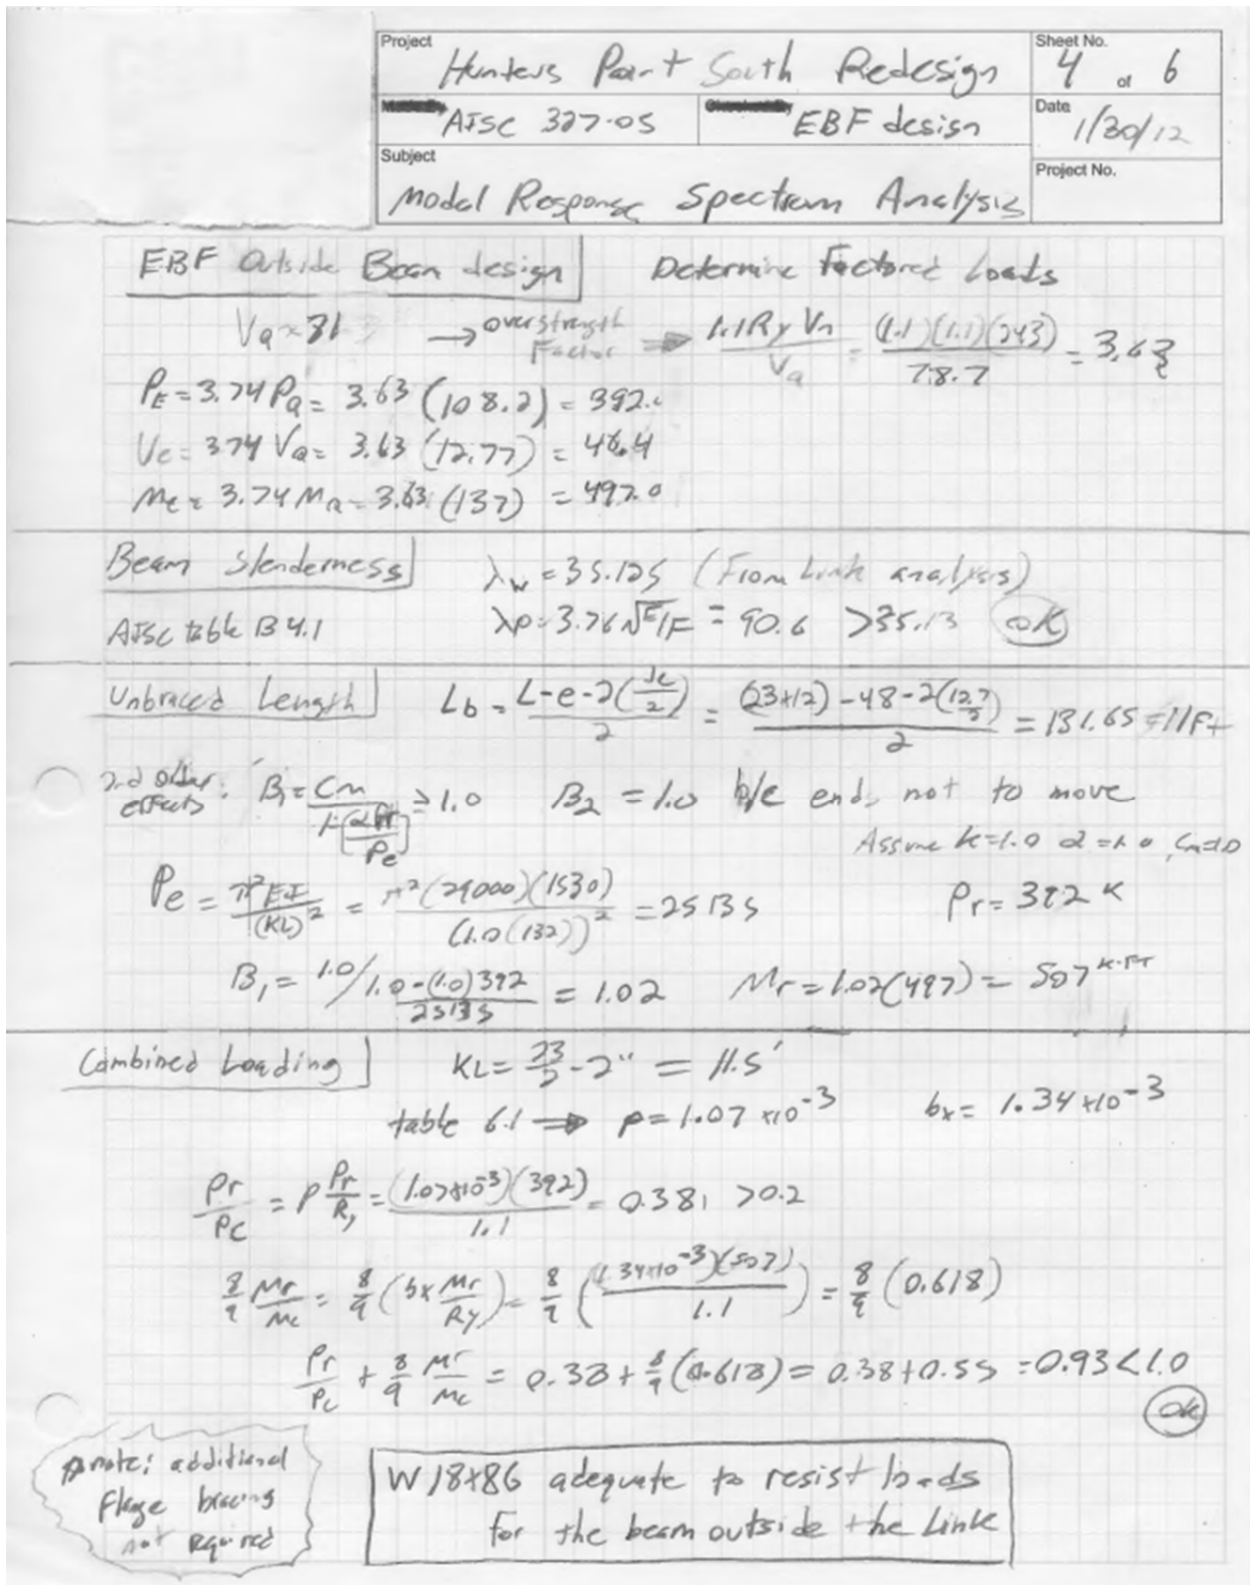 Project
Hunters Point South Redesign
Sheet No.
4 of 6
AISC 327-05
EBF design
Date
1/30/12
Subject
Modal Response Spectrum Analysis
Project No.
EBF Outside Beam design
Determine Factored Loads
→ overstrength Factor ⇒ 1.1 Ry Vn / Va = (1.1)(1.1)(243) / 78.7 = 3.63
PE = 3.74 PQ = 3.63 (108.2) = 392.
VE = 3.74 VQ = 3.63 (12.77) = 46.4
ME = 3.74 MQ = 3.63 (137) = 497.0
Beam Slenderness
λw = 35.125 (From Link analysis)
AISC table B4.1
λp = 3.76 √E/F = 90.6 > 35.13 OK
Unbraced Length
Lb = L-e-2(dc/2) / 2 = (23×12)-48-2(12.7/2) / 2 = 131.65 = 11Ft
2nd order effects: B1 = Cm / 1-[αPr/Pe] ≥ 1.0 B2 = 1.0 b/c ends not to move
Assume k=1.0 α=1.0, Cm=1.0
Pe = π²EI / (KL)² = π²(29000)(1530) / (1.0(132))² = 25135
Pr = 392 K
B1 = 1.0 / 1.0-(1.0)392/25135 = 1.02 Mr = 1.02(497) = 507 K-FT
Combined Loading
KL = 23/2 - 2" = 11.5'
table 6.1 ⇒ p = 1.07 ×10⁻³ bx = 1.34 ×10⁻³
Pr/Pc = p Pr/Ry = (1.07×10⁻³)(392) / 1.1 = 0.381 > 0.2
8/9 Mr/Mc = 8/9 (bx Mr/Ry) = 8/9 ((1.34×10⁻³)(507) / 1.1) = 8/9 (0.618)
Pr/Pc + 8/9 Mr/Mc = 0.38 + 8/9 (0.618) = 0.38 + 0.55 = 0.93 < 1.0
OK
note: additional
Flange bracing
not required
W18×86 adequate to resist loads
for the beam outside the Link